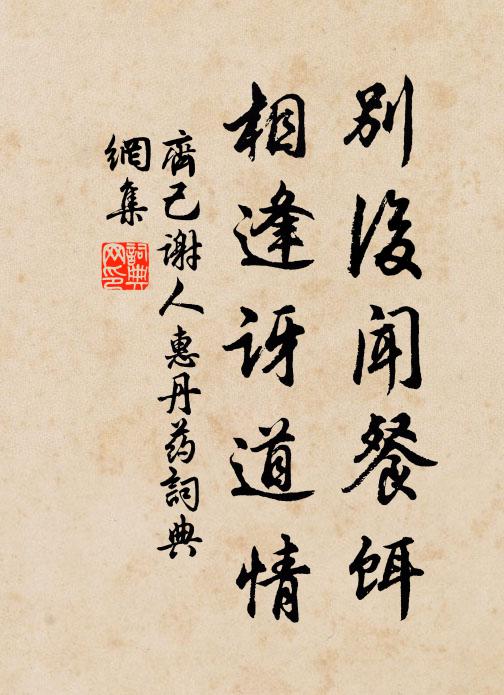 別後聞餐餌
相逢訝道情
齊己谢人惠丹药詞典
網集
詞典
网印